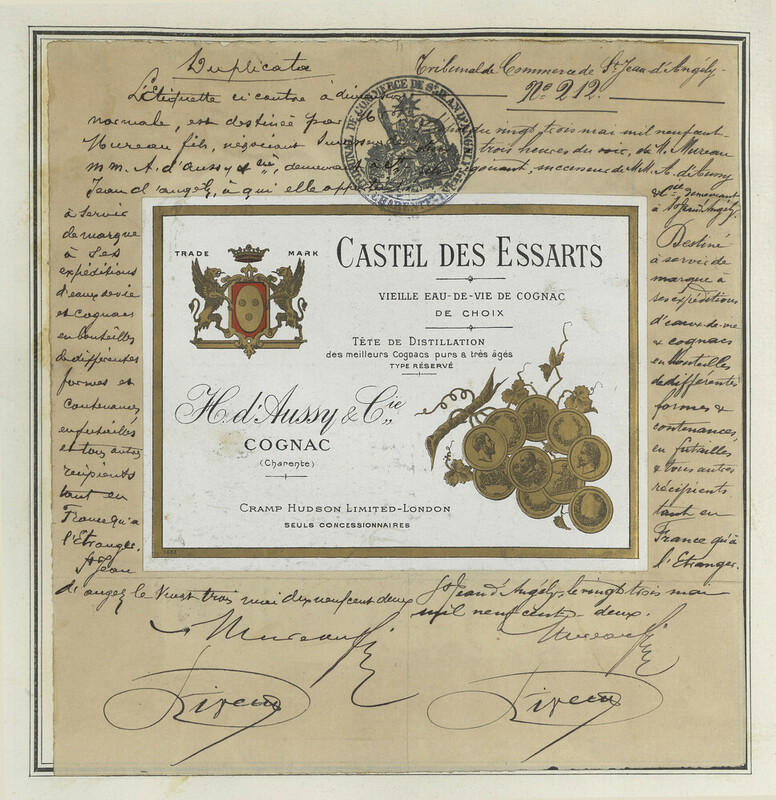 Duplicata
L'Etiquette ci contre à dimension
normale, est destinée par M.
Mureau fils, négociant successeur de
MM. A. d'Aussy & Cie, demeurant à St
Jean d'angely, à qui elle appartient
à servir
de marque
à ses
expéditions
d'eaux de vie
et cognacs
en bouteilles
de différentes
formes et
contenances
en futailles
et tous autres
récipients
tant en
France qu'à
l'Etranger.
St Jean
d'angely le Vingt trois mai dix neuf cent deux
Mureau fils
Tribunal de Commerce de St Jean d'Angély.
No 212.
du vingt trois mai mil neuf cent
trois heures du soir, de M. Mureau
négociant, successeur de MM. A. d'Aussy
& Cie demeurant
à St Jean d'Angély.
Destiné
à servir de
marque à
ses expéditions
d'eaux-de-vie
& cognacs
en bouteilles
de différentes
formes &
contenances,
en futailles
& tous autres
récipients
tant en
France qu'à
l'Etranger.
St Jean d'Angély, le vingt trois mai
mil neuf cent deux.
Mureau fils
TRIBUNAL DE COMMERCE DE ST JEAN D'ANGELY
CHARENTE-INRE
TRADE MARK
CASTEL DES ESSARTS
VIEILLE EAU-DE-VIE DE COGNAC
DE CHOIX
TÊTE DE DISTILLATION
des meilleurs Cognacs purs & très âgés
TYPE RÉSERVÉ
H. d'Aussy & Cie
COGNAC
(Charente)
CRAMP HUDSON LIMITED-LONDON
SEULS CONCESSIONNAIRES